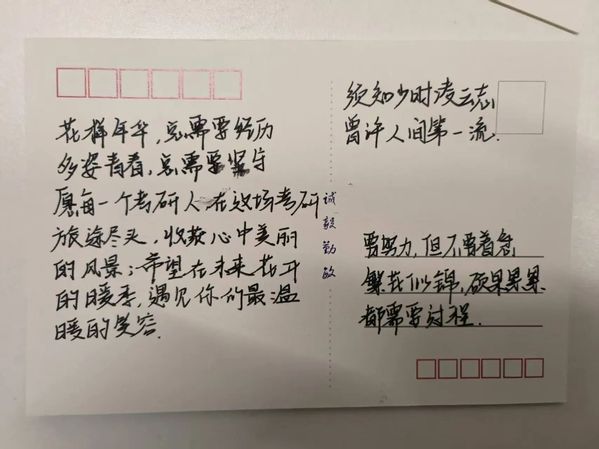 花样年华，总需要经历
多姿青春，总需要坚守
愿每一个考研人在这场考研
旅途尽头，收获心中美丽
的风景；希望在未来花开
的暖季，遇见你们最温
暖的笑容.
诚毅勤敏
须知少时凌云志，
曾许人间第一流.
要努力，但不要着急
繁花似锦，硕果累累
都需要过程.